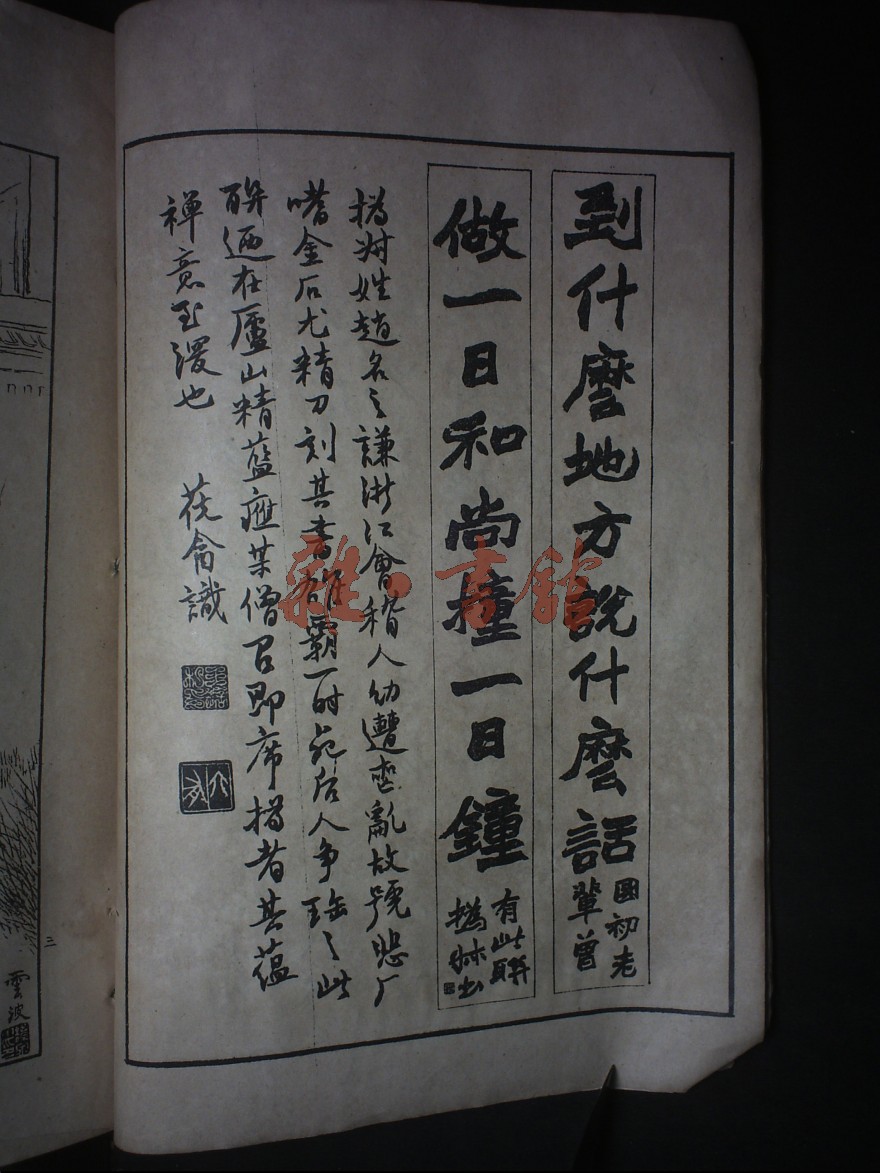 到什麼地方說什麼話
國初老
輩曾
做一日和尚撞一日鐘
有此聯
撝叔書
撝叔姓趙名之謙浙江會稽人幼遭喪亂故號悲厂
嗜金石尤精刀刻其書雄霸一時死后人争珍之此
聯迺在廬山精藍應某僧召即席揩者其蘊
禪意至深也
茯龕識
三
雲波
雜·書館